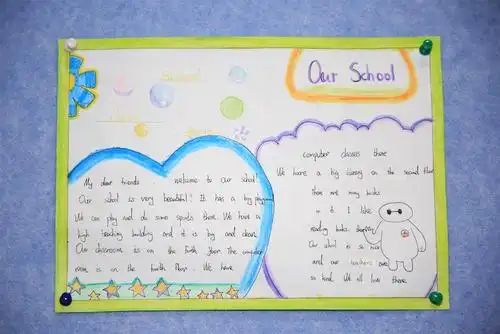 Our School
My dear friends welcome to our school!
Our school is very beautiful! It has a big playground
We can play and do some sports there. We have a
high teaching building and it is big and clean.
Our classroom is on the fourth floor. The computer
room is on the fourth floor. We have
computer classes there
We have a big library on the second floor
There are many books
in it. I like
reading books
Our school is so nice
and our teachers are
so kind. We all love there